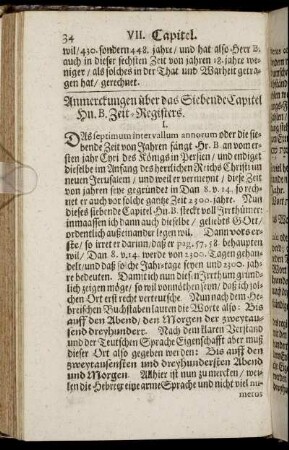 34 VII. Capitel.
wil/430. sondern 448. jahre/ und hat also Herr B.
auch in dieser sechsten Zeit von jahren 18. jahre we-
niger/ als solches in der That und Warheit getra-
gen hat/ gerechnet.
Anmerckungen über das Siebende Capitel
Hn. B. Zeit-Registers.
I.
DAs septimum intervallum annorum oder die sie-
bende Zeit von Jahren fängt Hr. B. an vom er-
sten jahr Cyri des Königs in Persien/ und endiget
dieselbe im Anfang des herrlichen Reichs Christi im
neuen Jerusalem/ und weil er vermeynt/ diese Zeit
von jahren seye gegründet in Dan 8. v. 14. so rech-
net er auch vor solche gantze Zeit 2300. jahre. Nun
dieses siebende Capitel Hn. B. steckt voll Irrthümer:
inmassen ich dann auch dieselbe/ geliebts GOtt/
ordentlich außeinander legen wil. Dann vors er-
ste/ so irret er darinn/ daß er pag. 57, 58 behaupten
wil/ Dan 8. v. 14. werde von 2300. Tagen gehan-
delt/ und daß solche Jahr-tage seyen und 2300. jah-
re bedeuten. Damit ich nun diesen Irrthum gründ-
lich zeigen möge/ so wil vonnöthen seyn/ daß ich sol-
chen Ort erst recht verteutsche. Nun nach dem He-
breischen Buchstaben lauten die Worte also: Bis
auff den Abend, den Morgen der zweytau-
send dreyhundert. Nach dem klaren Verstand
und der Teutschen Sprache Eigenschafft aber muß
dieser Ort also gegeben werden: Bis auff den
zweytausensten und dreyhundersten Abend
und Morgen. Allhier ist nun zu mercken/ wei-
len die Hebreer eine arme Sprache und nicht viel nu-
merus